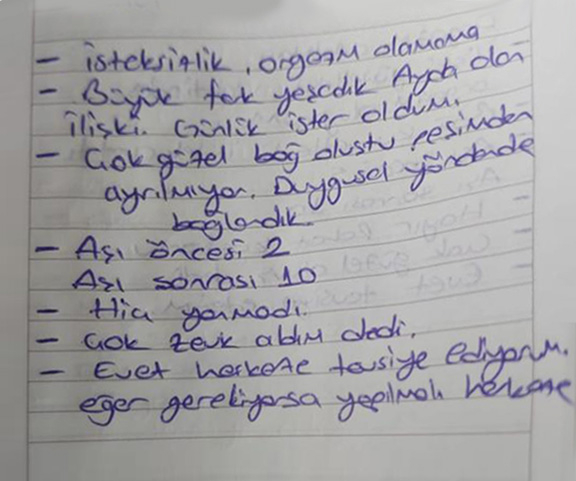 - isteksizlik, orgazm olamama
- Büyük fark yaşadık Ayda olan
ilişki. Günlük ister oldum.
- Çok güzel bağ oluştu peşimden
ayrılmıyor. Duygusal yöndende
bağlandık
- Aşı öncesi 2
Aşı sonrası 10
- Hiç yanmadı.
- Çok zevk aldım dedi.
- Evet herkeze tavsiye ediyorum.
eğer gerekiyorsa yapılmalı herkeze